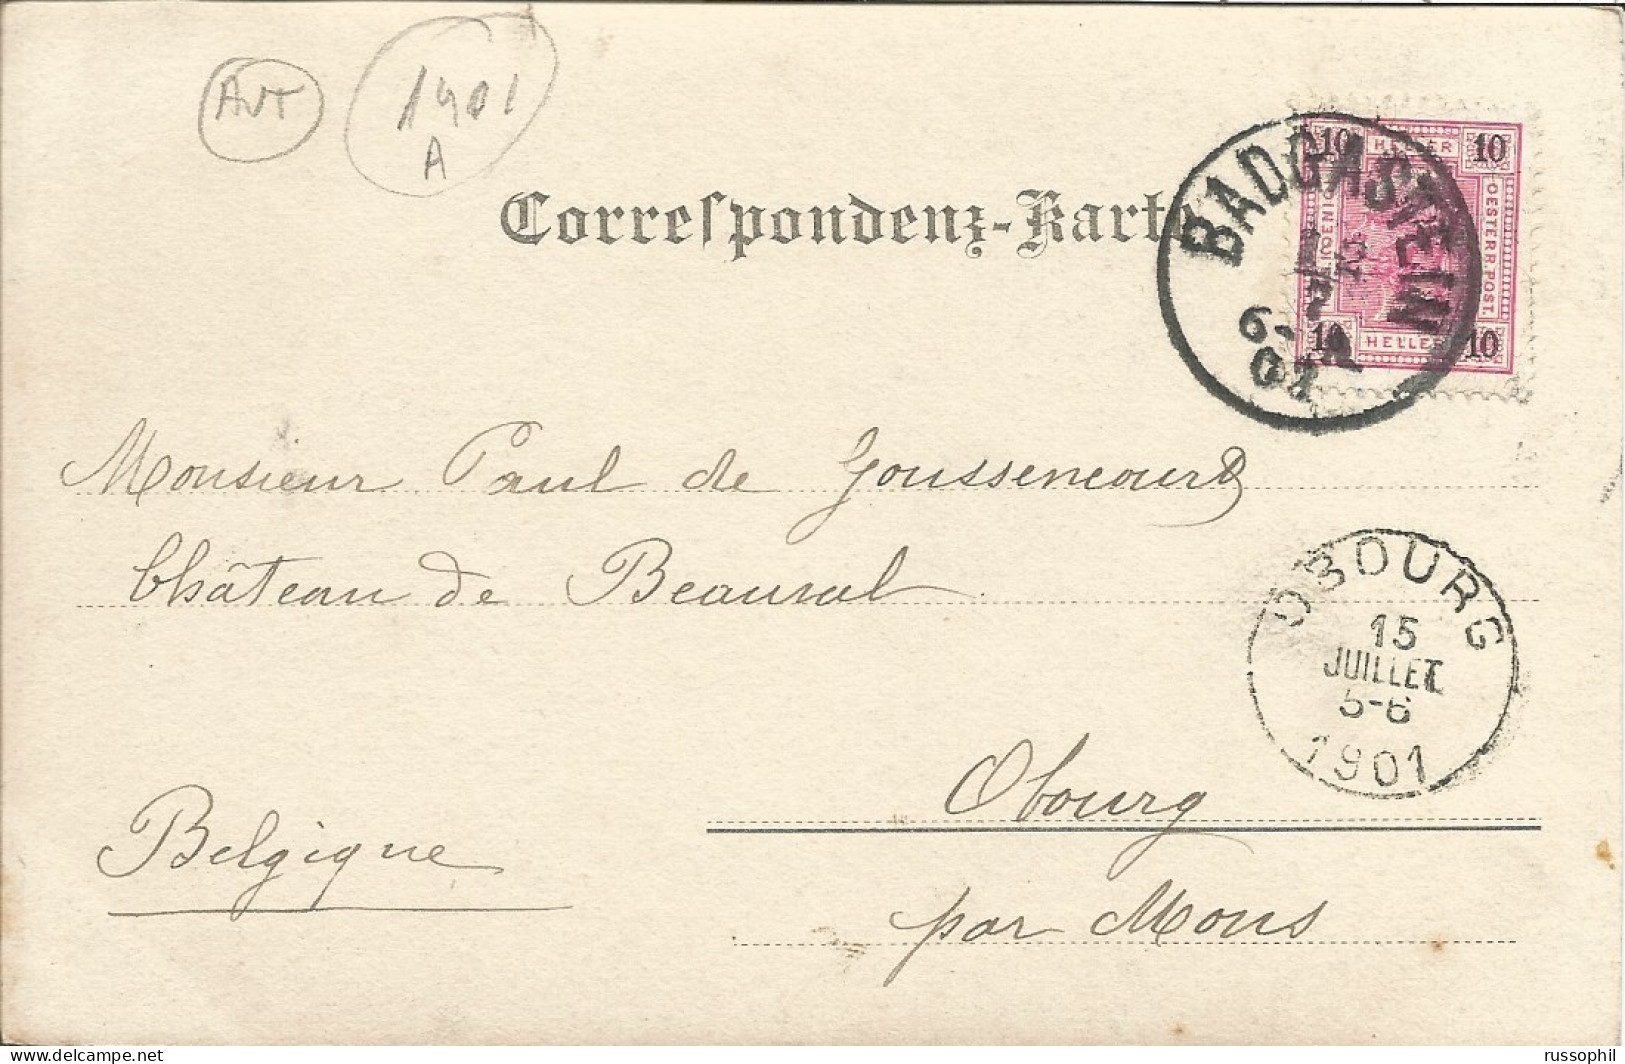 AUT
1901
A
Correspondenz-Karte
BADGASTEIN
6-
10 HELLER 10
OESTERR. POST.
10 HELLER 10
Monsieur Paul de Goussencourt
Château de Beauval
OBOURG
15
JUILLET
5-6
1901
Obourg
Belgique
par Mons
russophil